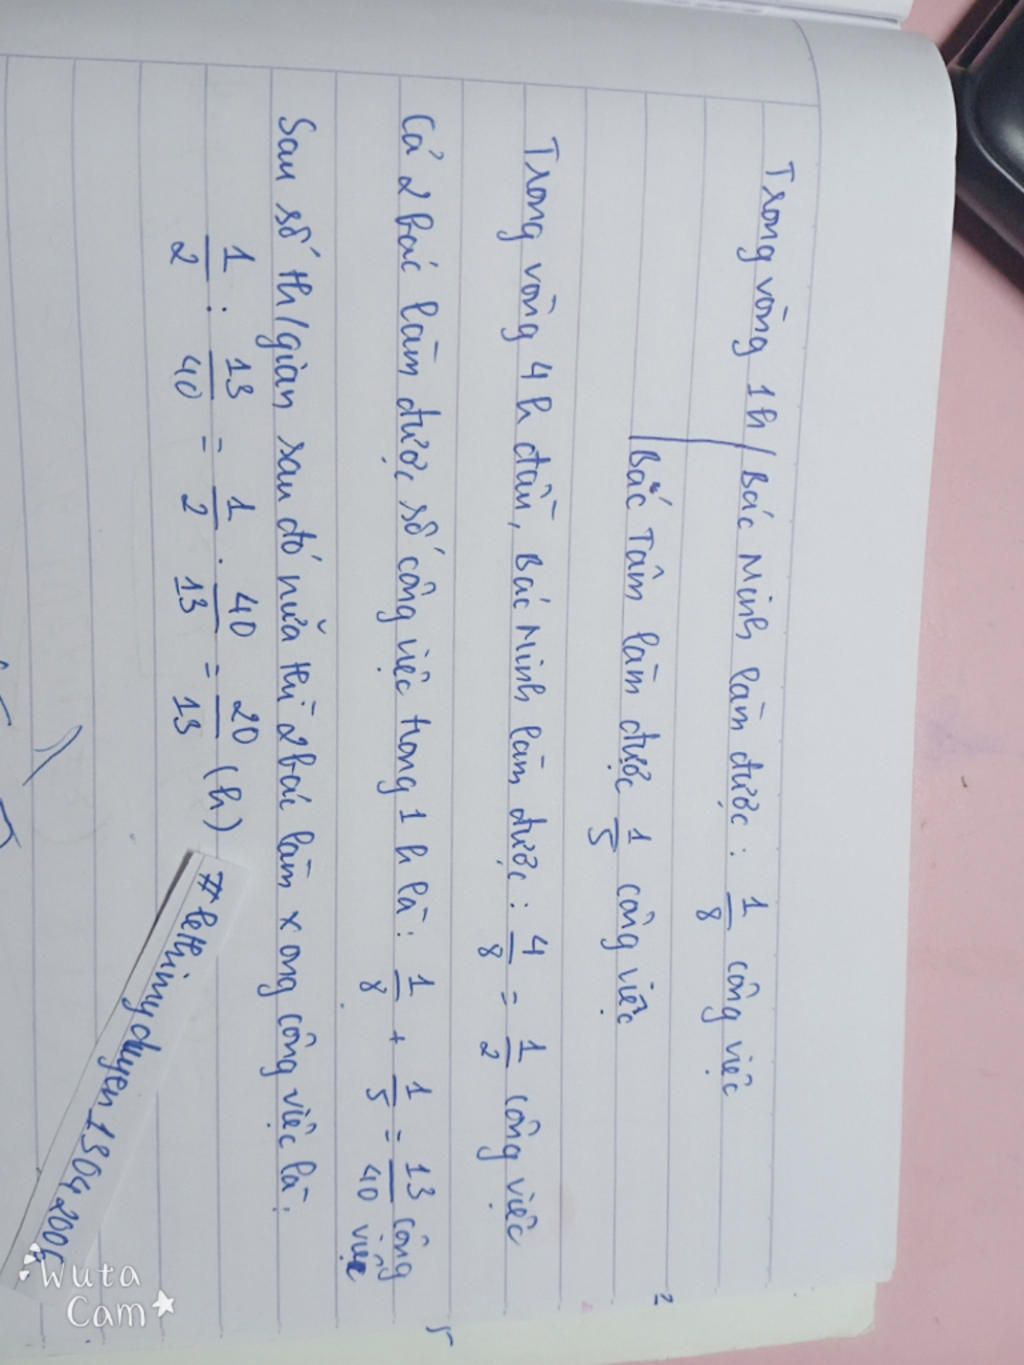 Trong vòng 1h / Bác Minh làm được : 1/8 công việc
Bác Tâm làm được 1/5 công việc
Trong vòng 4h đầu, Bác Minh làm được : 4/8 = 1/2 công việc
Cả 2 bác làm được số công việc trong 1h là : 1/8 + 1/5 = 13/40 công việc
Sau số th/gian sau đó nữa thì 2 bác làm xong công việc là :
1/2 : 13/40 = 1/2 . 40/13 = 20/13 (h)
Wuta
Cam